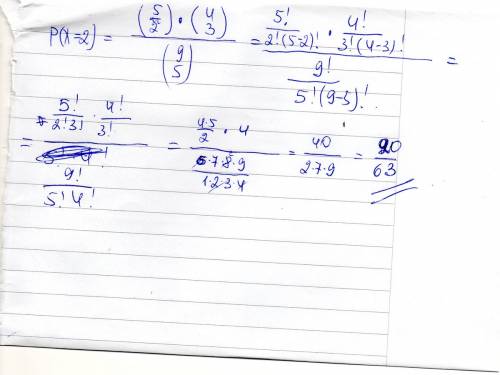 P(X=2) = \frac{\binom{5}{2} \cdot \binom{4}{3}}{\binom{9}{5}} = \frac{\frac{5!}{2!(5-2)!} \cdot \frac{4!}{3!(4-3)!}}{\frac{9!}{5!(9-5)!}} =
= \frac{\frac{5!}{2!3!} \cdot \frac{4!}{3!}}{\frac{9!}{5!4!}} = \frac{\frac{4 \cdot 5}{2} \cdot 4}{\frac{6 \cdot 7 \cdot 8 \cdot 9}{1 \cdot 2 \cdot 3 \cdot 4}} = \frac{40}{2 \cdot 7 \cdot 9} = \frac{20}{63}